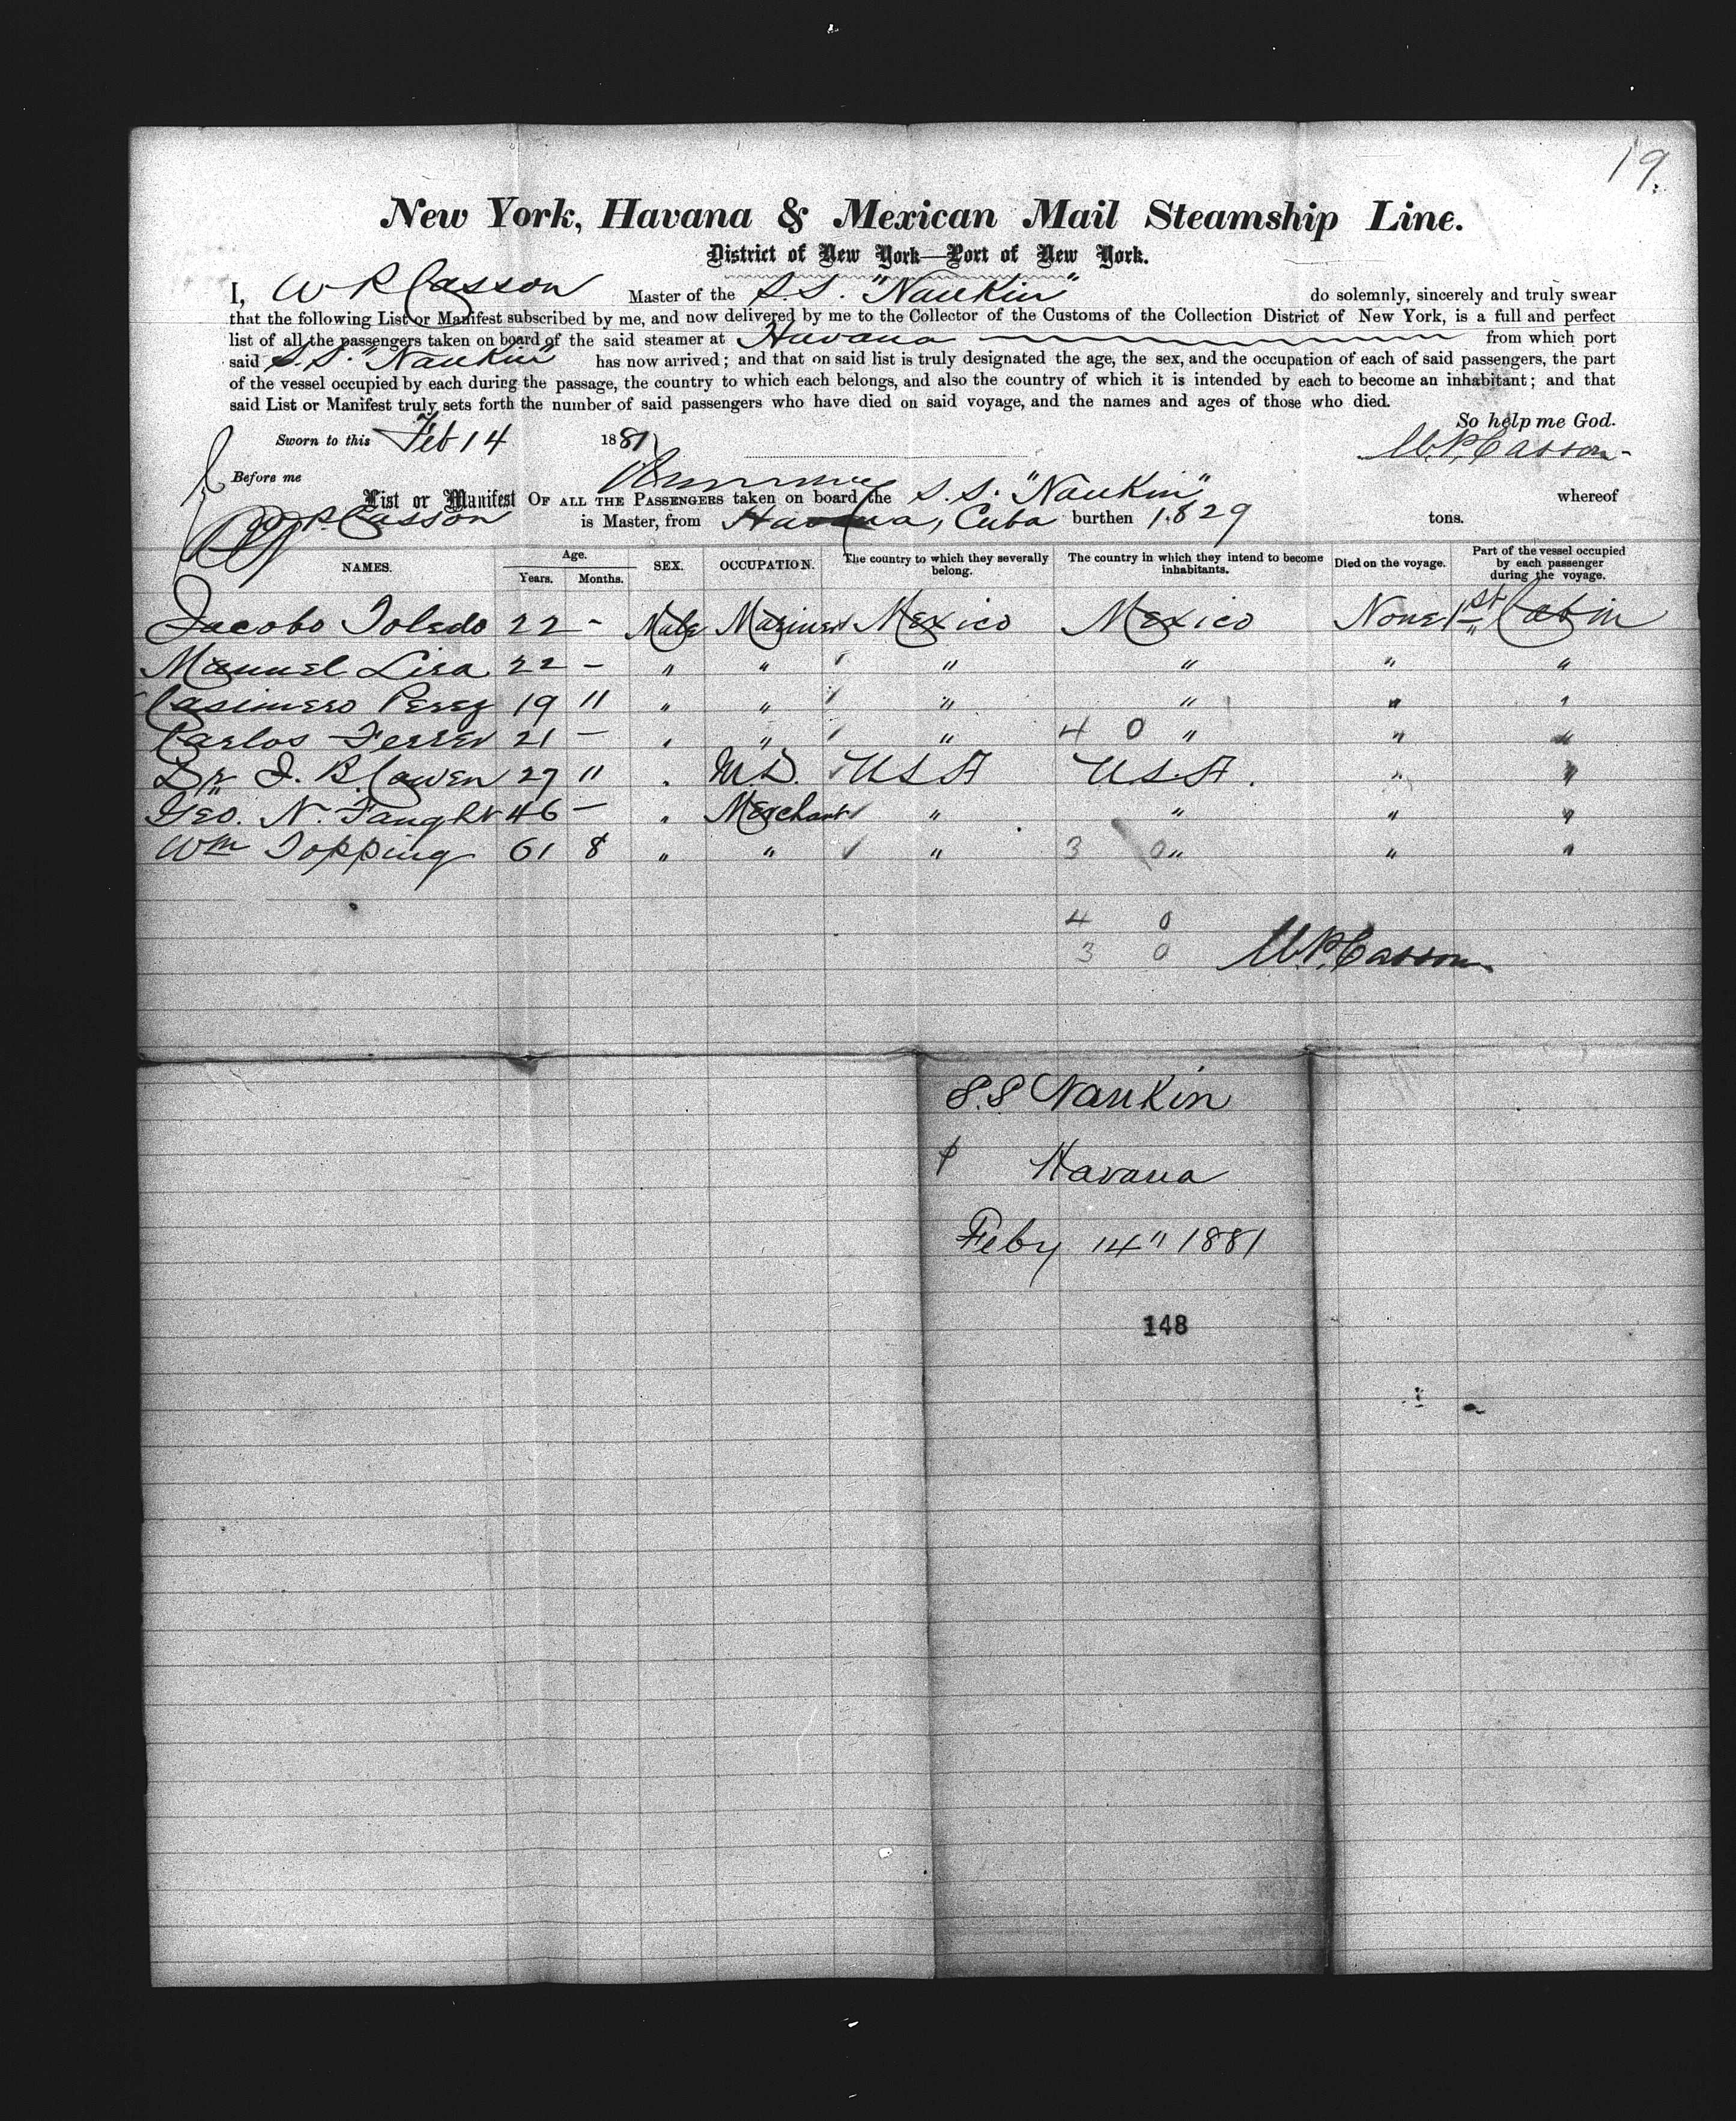 19.
New York, Havana & Mexican Mail Steamship Line.
District of New York—Port of New York.
I, W P Casson Master of the S.S. "Nankin" do solemnly, sincerely and truly swear
that the following List or Manifest subscribed by me, and now delivered by me to the Collector of the Customs of the Collection District of New York, is a full and perfect
list of all the passengers taken on board of the said steamer at Havana from which port
said S.S. "Nankin" has now arrived; and that on said list is truly designated the age, the sex, and the occupation of each of said passengers, the part
of the vessel occupied by each during the passage, the country to which each belongs, and also the country of which it is intended by each to become an inhabitant; and that
said List or Manifest truly sets forth the number of said passengers who have died on said voyage, and the names and ages of those who died.
So help me God.
Sworn to this Feb 14 1881 W.P. Casson
Before me
List or Manifest OF ALL THE PASSENGERS taken on board the S.S. "Nankin" whereof
W.P. Casson is Master, from Havana, Cuba burthen 1.829 tons.
NAMES. Age. Years. Months. SEX. OCCUPATION. The country to which they severally belong. The country in which they intend to become inhabitants. Died on the voyage. Part of the vessel occupied by each passenger during the voyage.
Jacobo Toledo 22 - Male Mariner Mexico Mexico None 1st Cabin
Manuel Lira 22 - " " " " " "
Casimero Perez 19 11 " " " " " "
Carlos Ferrer 21 - " " " 4 0 " " "
Dr J. B. Cowen 27 11 " M.D. U S A U.S.A. " "
Geo. N. Faught 46 - " Merchant " " " "
Wm Topping 61 8 " " " 3 0 " " "
4 0
3 0 W.P. Casson
S.S Nankin
Havana
Feby 14" 1881
148